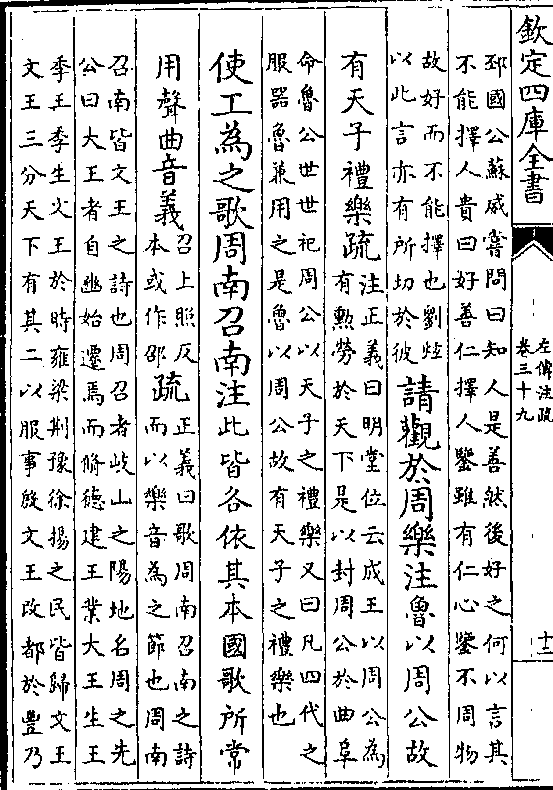 欽定四庫全書
左傳注疏
卷三十九
十二
邳國公蘇威嘗問曰知人是善然後好之何以言其
不能擇人貴曰好善仁擇人鑒雖有仁心鑒不周物
故好而不能擇也劉炫
以此言亦有所切於彼
請觀於周樂注魯以周公故
有天子禮樂疏
注正義曰明堂位云成王以周公為
有勲勞於天下是以封周公於曲阜
命魯公世世祀周公以天子之禮樂又曰凡四代之
服器魯兼用之是魯以周公故有天子之禮樂也
使工為之歌周南召南注此皆各依其本國歌所常
用聲曲音義
召上照反
本或作邵
疏
正義曰歌周南召南之詩
而以樂音為之節也周南
召南皆文王之詩也周召者岐山之陽地名周之先
公曰大王者自豳始遷焉而脩德建王業大王生王
季王季生文王於時雍梁荆豫徐揚之民皆歸文王
文王三分天下有其二以服事殷文王改都於豐乃